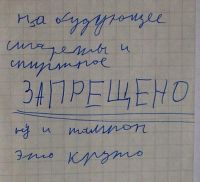 На будующее
сигареты и
спиртное
ЗАПРЕЩЕНО
ну и тампон
это круто